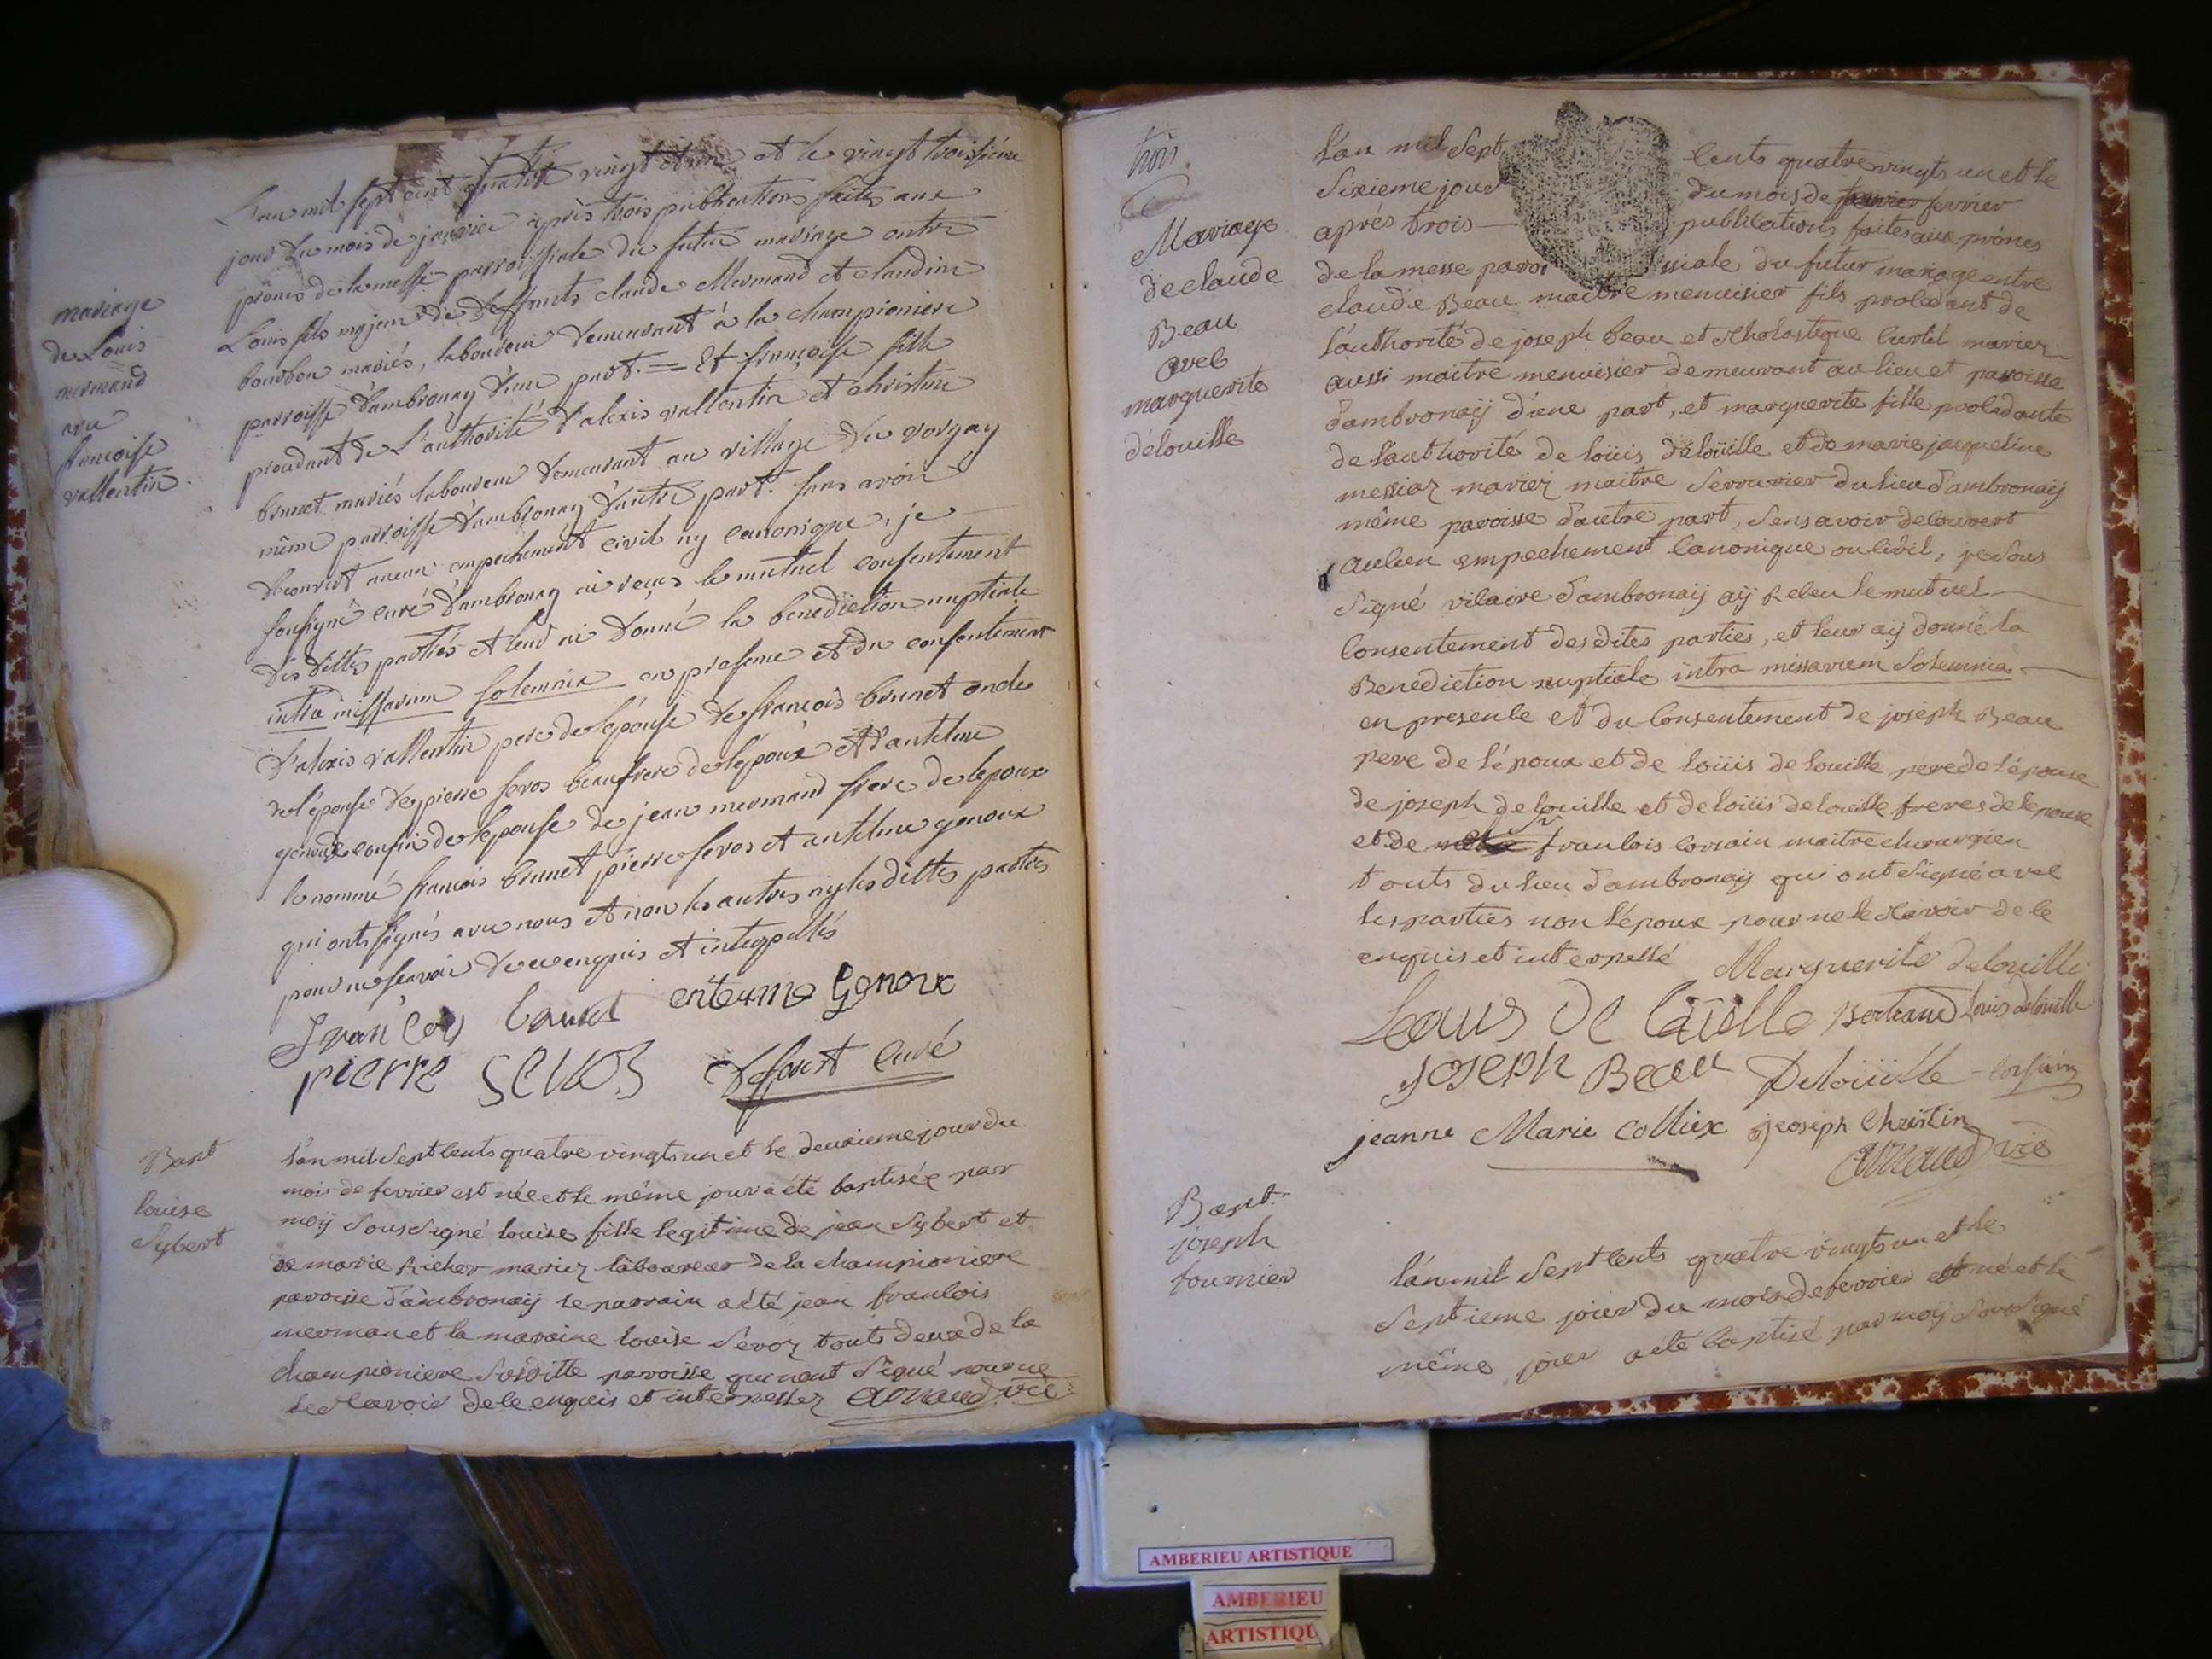 mariage
de Louis
mermand
avec
francoise
vallentin.
L'an mil sept cent quatre vingt et un et le vingt troisième
jour du mois de janvier après trois publications faites aux
prônes de la messe parroissiale du futur mariage entre
Louis fils majeur de deffunts claude Mermand et claudine
bourbon mariés, laboureur demeurant à la championiere
parroisse d'ambronay d'une part. = Et françoise fille
procedant de L'authorité d'alexis vallentin et christine
brunet mariés laboureur demeurant au village du vorgay
même parroisse d'ambronay d'autre part. sans avoir
decouvert aucun empechement civil ny canonique, je
soussigné curé d'ambronay ai reçus le mutuel consentement
des dittes parties et leur ai donné la benediction nuptiale
intra missarum solemnia en presence et du consentement
d'alexis vallentin pere de lépouse de françois brunet oncle
de l'épouse de pierre servos beaufrere de lépoux et d'antelme
genoux cousin de lépouse de jean mermand frere de lepoux
le nommé francois brunet pierre servos et antelme genoux
qui ont signés avec nous et non les autres ny les dittes parties
pour ne sçavoir de ce enquis et interpellés
françois brunet entelme Genoux
pierre servos Defforest curé
Bapt
louise
Sybert
L'an mil Sept cents quatre vingts un et le deuxieme jour du
mois de fevrier est née et le même jour a été baptisée par
moÿ Soussigné louise fille legitime de jean Sybert et
de marie Richer mariez laboureur de la championiere
paroisse d'ambronaÿ le parrain a été jean francois
merman et la maraine louise Servoz touts deux de la
championiere Susditte paroisse qui n'ont Signé pour ne
le Sçavoir de ce enquis et interpellez arnaud vic:
trois
Mariage
de claude
Beau
avec
marguerite
délouille
L'an mil Sept cents quatre vingts un et le
Sixieme jour du mois de fevrier
après trois publications faites aux prônes
de la messe paroissiale du futur mariage entre
claude Beau maitre menuisier fils procedant de
l'authorité de joseph beau et scholastique curtil mariez
aussi maitre menuisier demeurant au lieu et paroisse
d'ambronaÿ d'une part, et marguerite fille procedante
de l'authorité de loüis delouille et de marie jacqueline
messiaz mariez maitre Serrurier du lieu d'ambronaÿ
même paroisse d'autre part, Sans avoir decouvert
aucun empechement canonique ou civil, je Sous
Signé vicaire d'ambronaÿ aÿ Receu le mutuel
consentement desdites parties, et leur aÿ donné la
Benediction nuptiale intra missarum Solemnia
en presence et du consentement de joseph Beau
pere de l'époux et de loüis delouille pere de l'épouse
de joseph delouille et de loüis delouille freres de lepouse
et de Sr francois corsain maitre chirurgien
touts du lieu d'ambronaÿ qui ont Signé avec
les parties non l'époux pour ne le Sçavoir de ce
enquis et interpellé Marguerite delouille
Louis De louille Bertrand Louis delouille
joseph Beau Delouille corsain
jeanne Marie collix joseph Christin
arnaud vic
Bapt.
joseph
fournier
L'an mil Sept cents quatre vingts un et le
Septieme jour du mois de fevrier est né et le
même jour a été baptisé par moÿ Soussigné
AMBERIEU ARTISTIQUE
AMBERIEU
ARTISTIQU